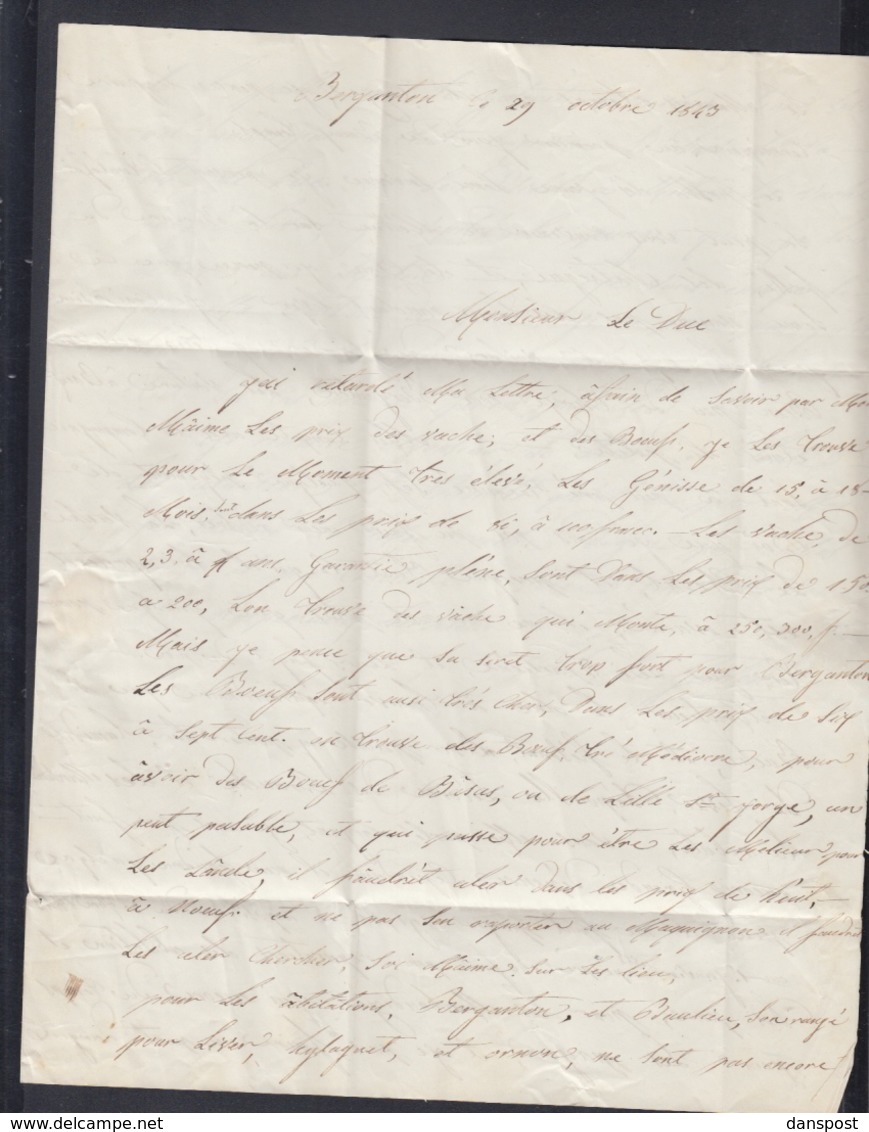 Berganton le 29 octobre 1843
Monsieur Le Duc
jai retardé Ma Lettre, âfain de Savoir par Moi
Mâime Les prix des vache, et des Boeuf, je Les trouve
pour Le Moment tres élevé, Les Génisse de 15, à 18
Mois, sont dans Les prix de à 100 franc. Les vache, de
2, 3, à 4 ans, Garantie pléne, Sont Dans Les prix de 150
a 200, Lon trouve des vache qui Monte, à 250, 300, f.
Mais je pence que sa serét trop fort pour Berganton
Les Boeuf Sont ausi trés Cher, Dans Les prix de Six
à Sept Cent. on trouve des Boeuf tré Médiocre, pour
âvoir des Boeuf de Bâsas, ou de Lille St jorge, un
peut pasable, et qui passe pour être Les Mélieur pour
Les Lânde, il faudrét aler dans les prix de huit,
à Noeuf et ne pas Sen raporter au Maquignon il faudrét
Les aler Chercher, Soi Mâime Sur Les lieu,
pour Les âbitâtions, Berganton, et Baulieu, Son rangé
pour Liver, et ornon, ne Sont pas encore
danspost